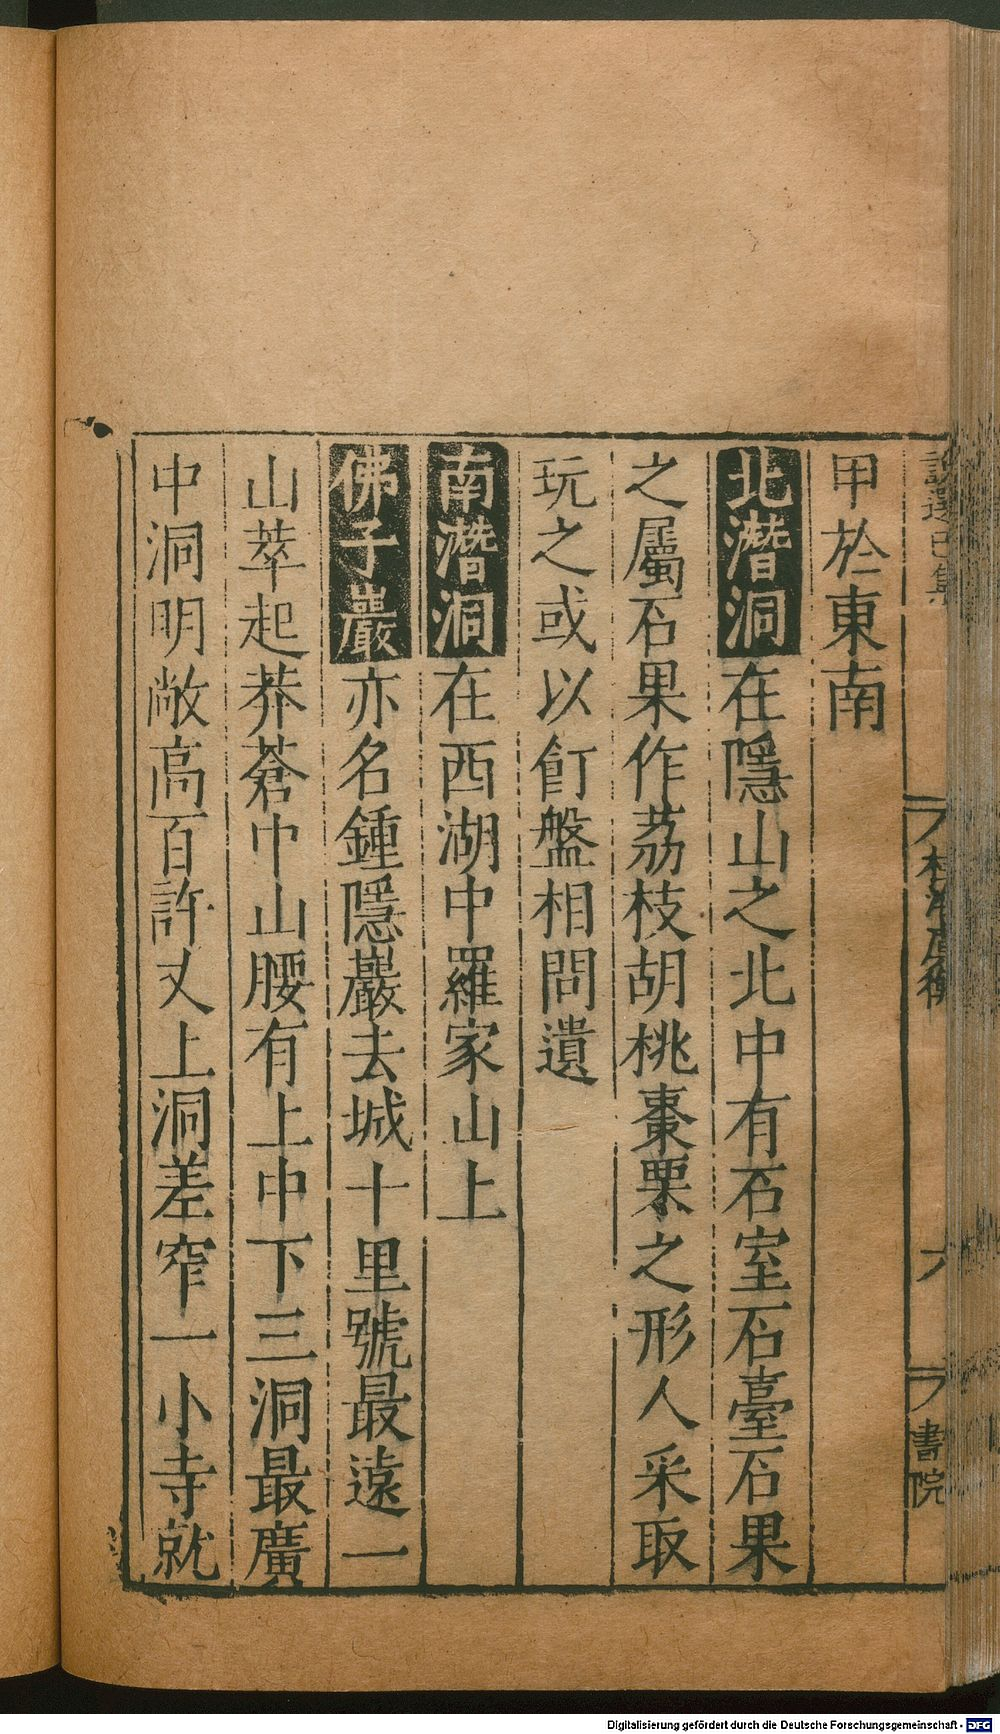 甲於東南
北潛洞在隱山之北中有石室石臺石果
之屬石果作荔枝胡桃棗栗之形人采取
玩之或以飣盤相問遺
南潛洞在西湖中羅家山上
佛子巖亦名鍾隱巖去城十里號最遠一
山萃起莽蒼中山腰有上中下三洞最廣
中洞明敞高百許丈上洞差窄一小寺就
書院
Digitalisierung gefördert durch die Deutsche Forschungsgemeinschaft - DFG